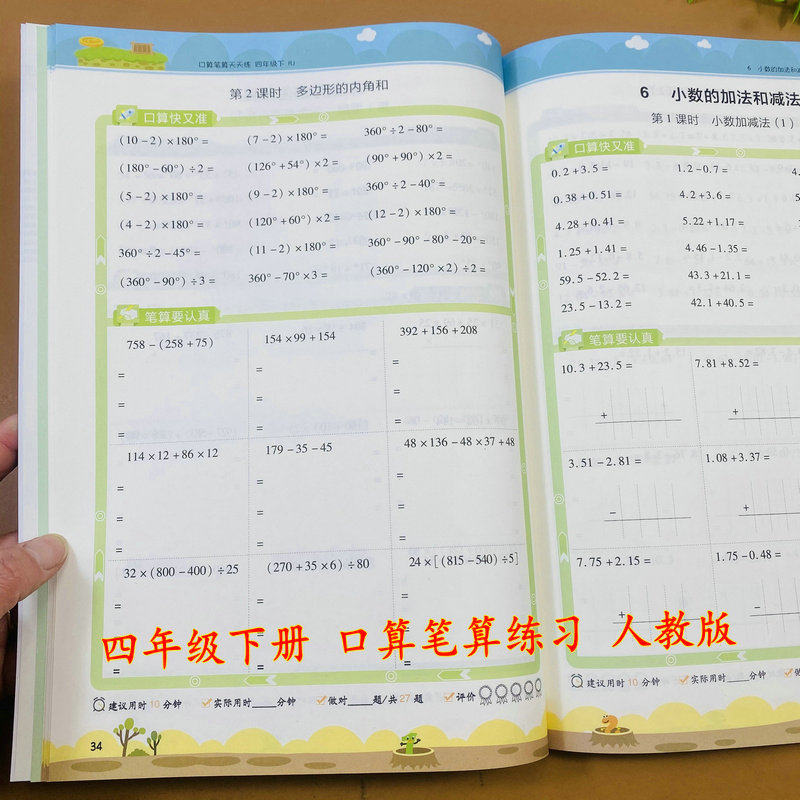 口算笔算天天练 四年级下 RJ
第2课时 多边形的内角和
口算快又准
(10-2)×180°= (7-2)×180°= 360°÷2-80°=
(180°-60°)÷2= (126°+54°)×2= (90°+90°)×2=
(5-2)×180°= (9-2)×180°= 360°÷2-40°=
(4-2)×180°= (120°+60°)×2= (12-2)×180°=
360°÷2-45°= (11-2)×180°= 360°-90°-80°-20°=
(360°-90°)÷3= 360°-70°×3= (360°-120°×2)÷2=
笔算要认真
758-(258+75) 154×99+154 392+156+208
= = =
= = =
= = =
114×12+86×12 179-35-45 48×136-48×37+48
= = =
= = =
= = =
32×(800-400)÷25 (270+35×6)÷80 24×[(815-540)÷5]
= = =
= = =
建议用时10分钟 实际用时____分钟 做对____题/共27题 评价
34
6 小数的加法和减
6 小数的加法和减法
第1课时 小数加减法(1)
口算快又准
0.2+3.5= 1.2-0.7= 4.
0.38+0.51= 4.2+3.6= 5.
4.28+0.41= 5.22+1.17=
1.25+1.41= 4.46-1.35=
59.5-52.2= 43.3+21.1=
23.5-13.2= 42.1+40.5=
笔算要认真
10.3+23.5= 7.81+8.52=
+ +
3.51-2.81= 1.08+3.37=
- +
7.75+2.15= 1.75-0.48=
+ -
建议用时10分钟 实际用时____分钟
四年级下册 口算笔算练习 人教版